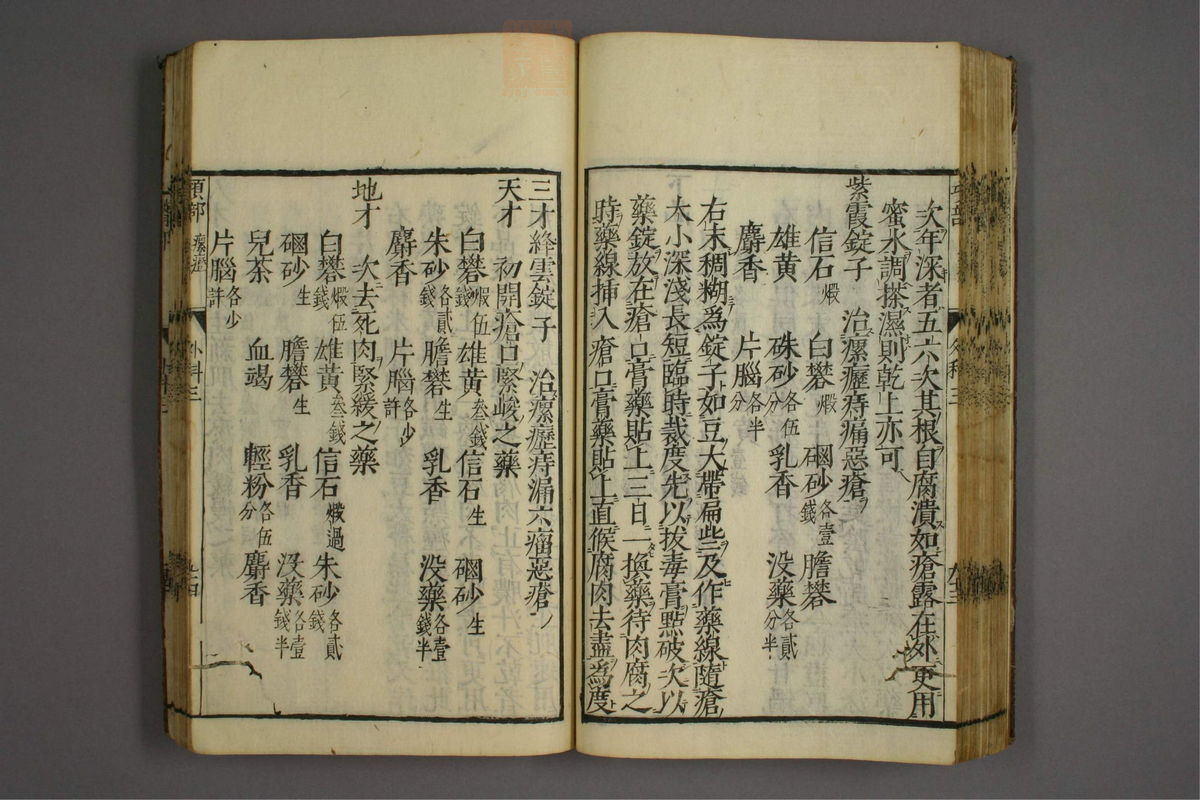 次年深者五六次其根自腐潰如瘡露在外更用
蜜水調搽濕則乾上亦可
紫霞錠子 治瘰癧痔痛惡瘡
信石煅 白礬煅 硇砂各壹錢 膽礬
雄黃 硃砂各伍分 乳香 没藥各貳分半
麝香 片腦各半分
右末稠糊爲錠子如豆大帶扁些及作藥線隨瘡
大小深淺長短臨時裁度先以拔毒膏點破次以
藥錠放在瘡口膏藥貼上三日一換藥待肉腐之
時藥線挿入瘡口膏藥貼上直候腐肉去盡爲度
三才絳雲錠子 治瘰癧痔漏六瘤惡瘡
天才 初開瘡口緊峻之藥
白礬煆伍錢 雄黃叁錢 信石生 硇砂生
朱砂各貳錢 膽礬生 乳香 没藥各壹錢半
麝香 片腦各少許
地才 次去死肉緊緩之藥
白礬煆伍錢 雄黃叁錢 信石煆過 朱砂各貳錢
硇砂生 膽礬生 乳香 没藥各壹錢半
兒茶 血竭 輕粉各伍分 麝香
片腦各少許
項部 瘰癧 外科三